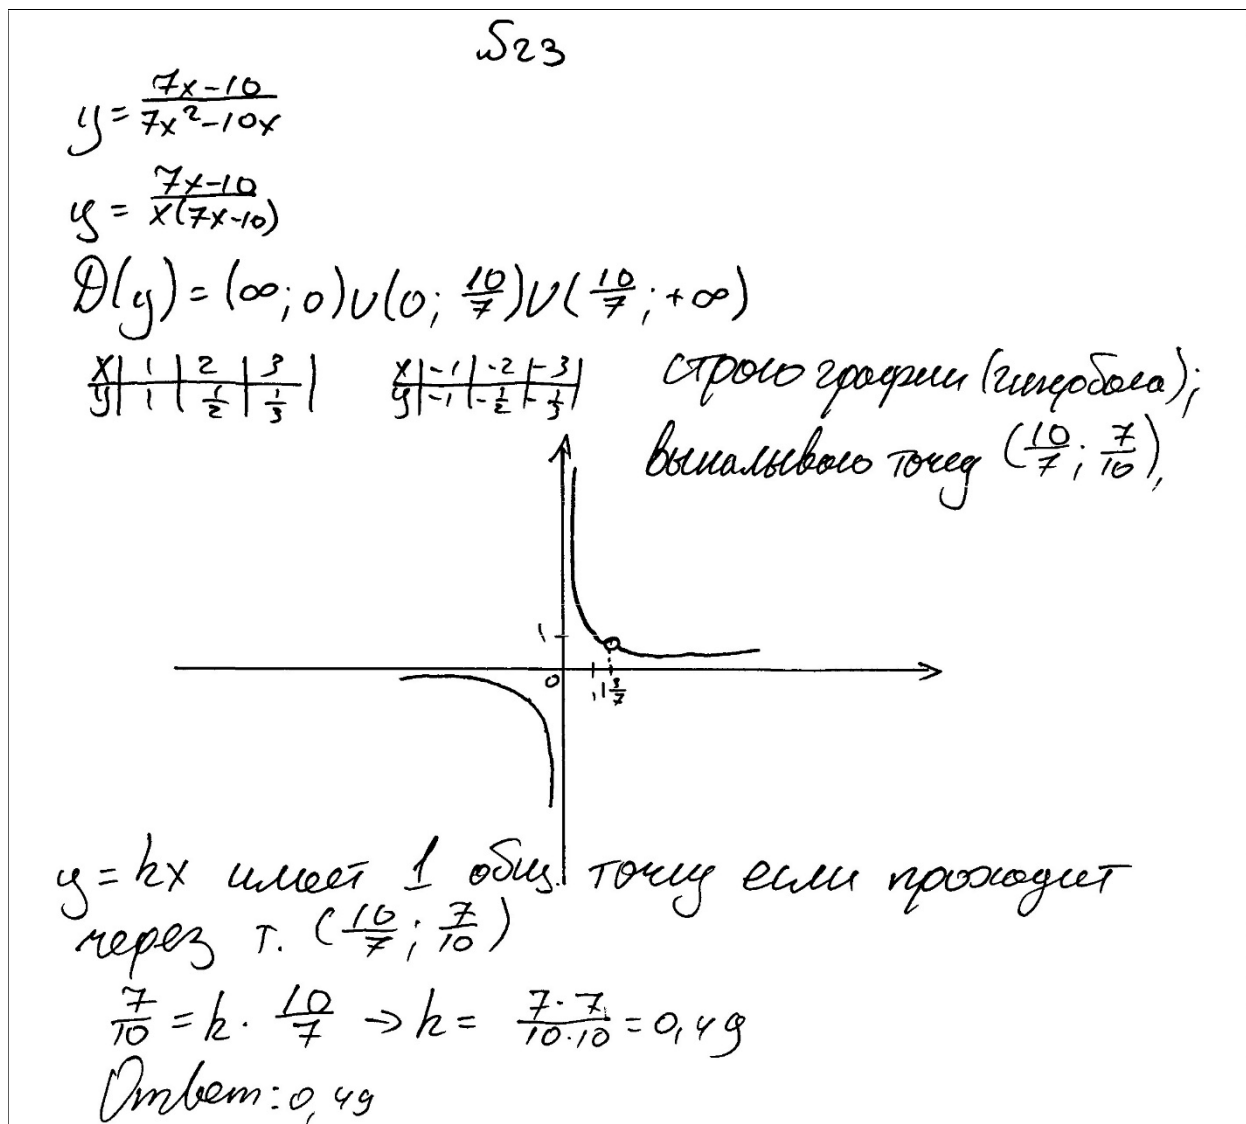 №23
y = (7x-10)/(7x²-10x)
y = (7x-10)/(x(7x-10))
D(y) = (∞; 0)∪(0; 10/7)∪(10/7; +∞)
x | 1 | 2 | 3 |
y | 1 | 1/2 | 1/3 |
x | -1 | -2 | -3 |
y | -1 | -1/2 | -1/3 |
строю график (гипербола);
выкалываю точку (10/7; 7/10),
1
0
1 3/7
y = kx имеет 1 общ. точку если проходит
через т. (10/7; 7/10)
7/10 = k · 10/7 → k = (7·7)/(10·10) = 0,49
Ответ: 0,49